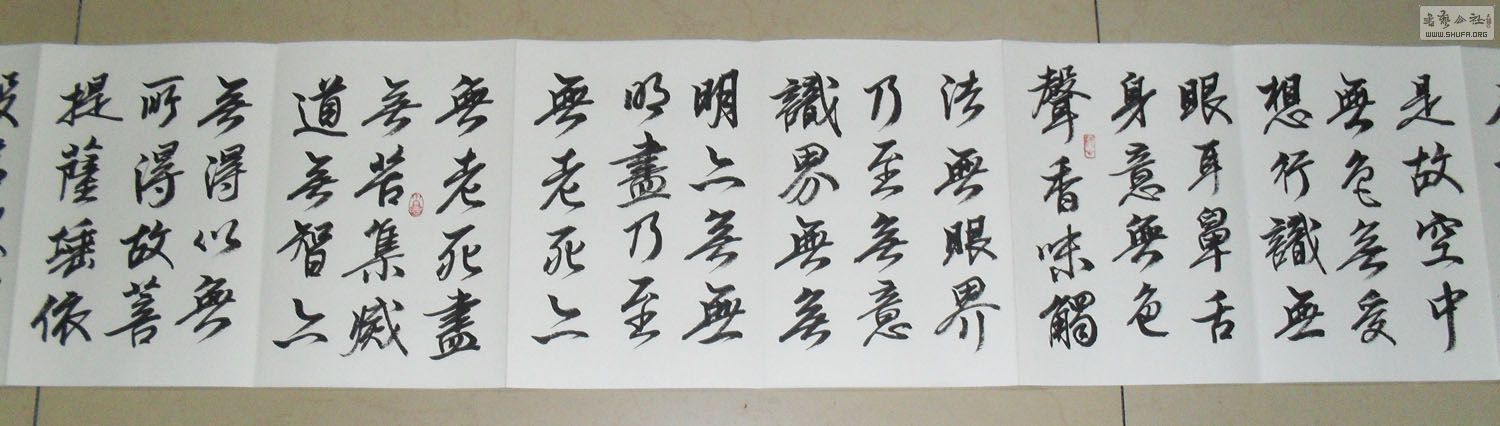 是故空中
無色無受
想行識無
眼耳鼻舌
身意無色
聲香味觸
法無眼界
乃至無意
識界無無
明亦無無
明盡乃至
無老死亦
無老死盡
無苦集滅
道無智亦
無得以無
所得故菩
提薩埵依
書藝公社
WWW.SHUFA.ORG